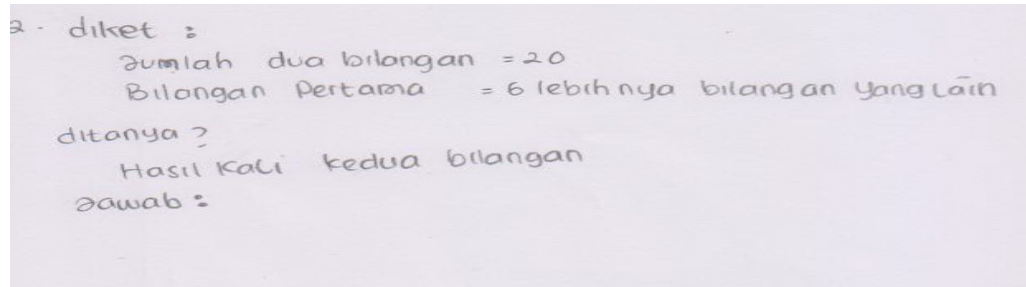 2. diket :
Jumlah dua bilangan = 20
Bilangan Pertama = 6 lebihnya bilangan yang Lain
ditanya ?
Hasil Kali kedua bilangan
Jawab :